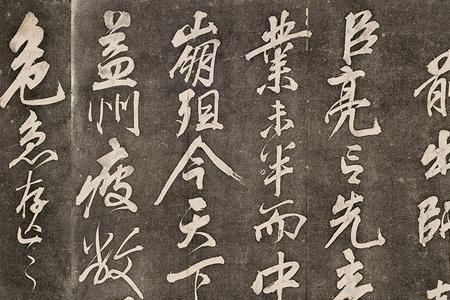 前出師
臣亮言先
業未半而中
崩殂今天下
益州疲敝
危急存亡之